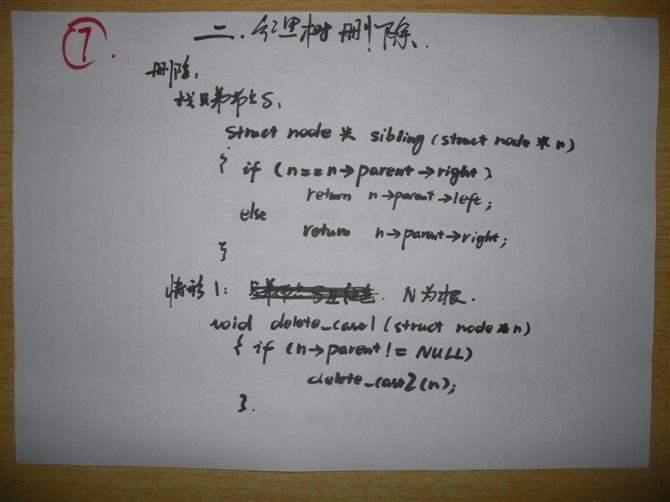 7.
二.红黑树删除.
删除:
找兄弟节点S:
struct node * sibling (struct node * n)
{ if (n==n→parent→right)
return n→parent→left;
else
return n→parent→right;
}
情形1: N为根.
void delete_case1 (struct node * n)
{ if (n→parent != NULL)
delete_case2(n);
}.